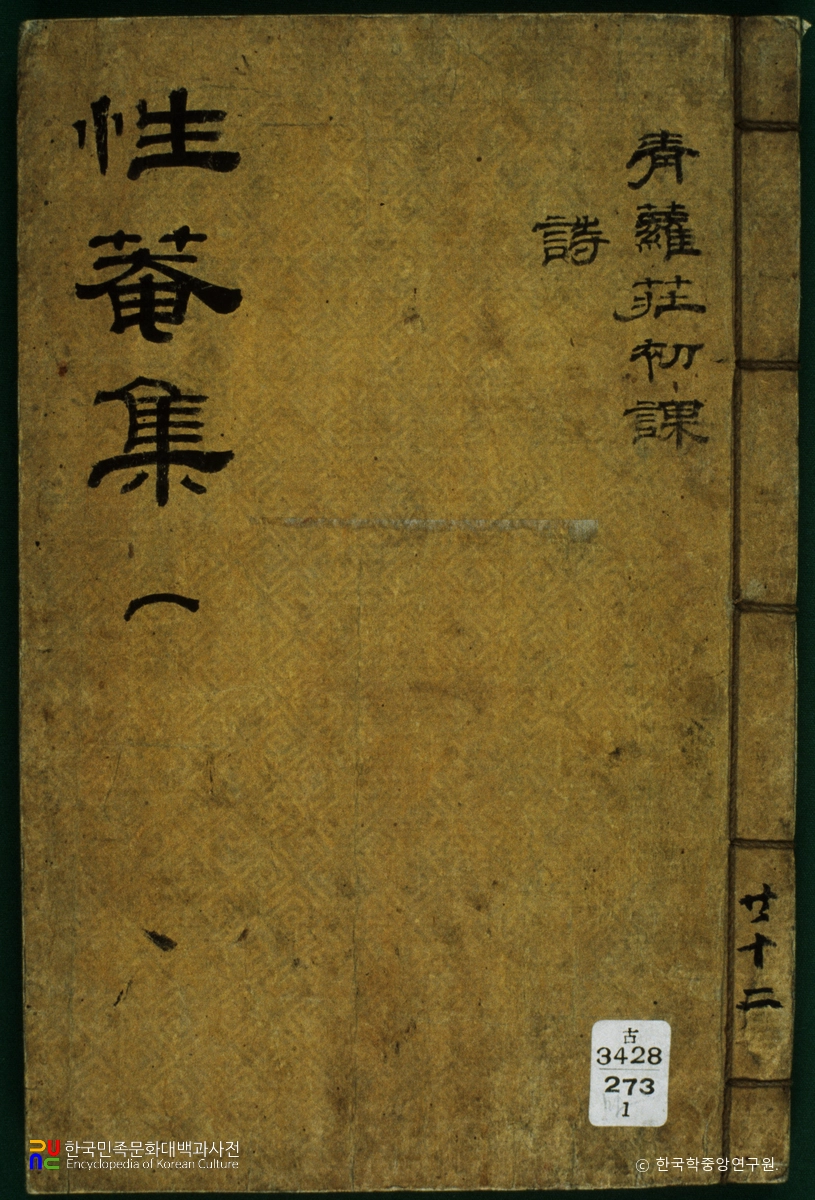 青蘿莊初課
詩
性菴集 一
共十二
古
3428
273
1
한국민족문화대백과사전
Encyclopedia of Korean Culture
© 한국학중앙연구원.